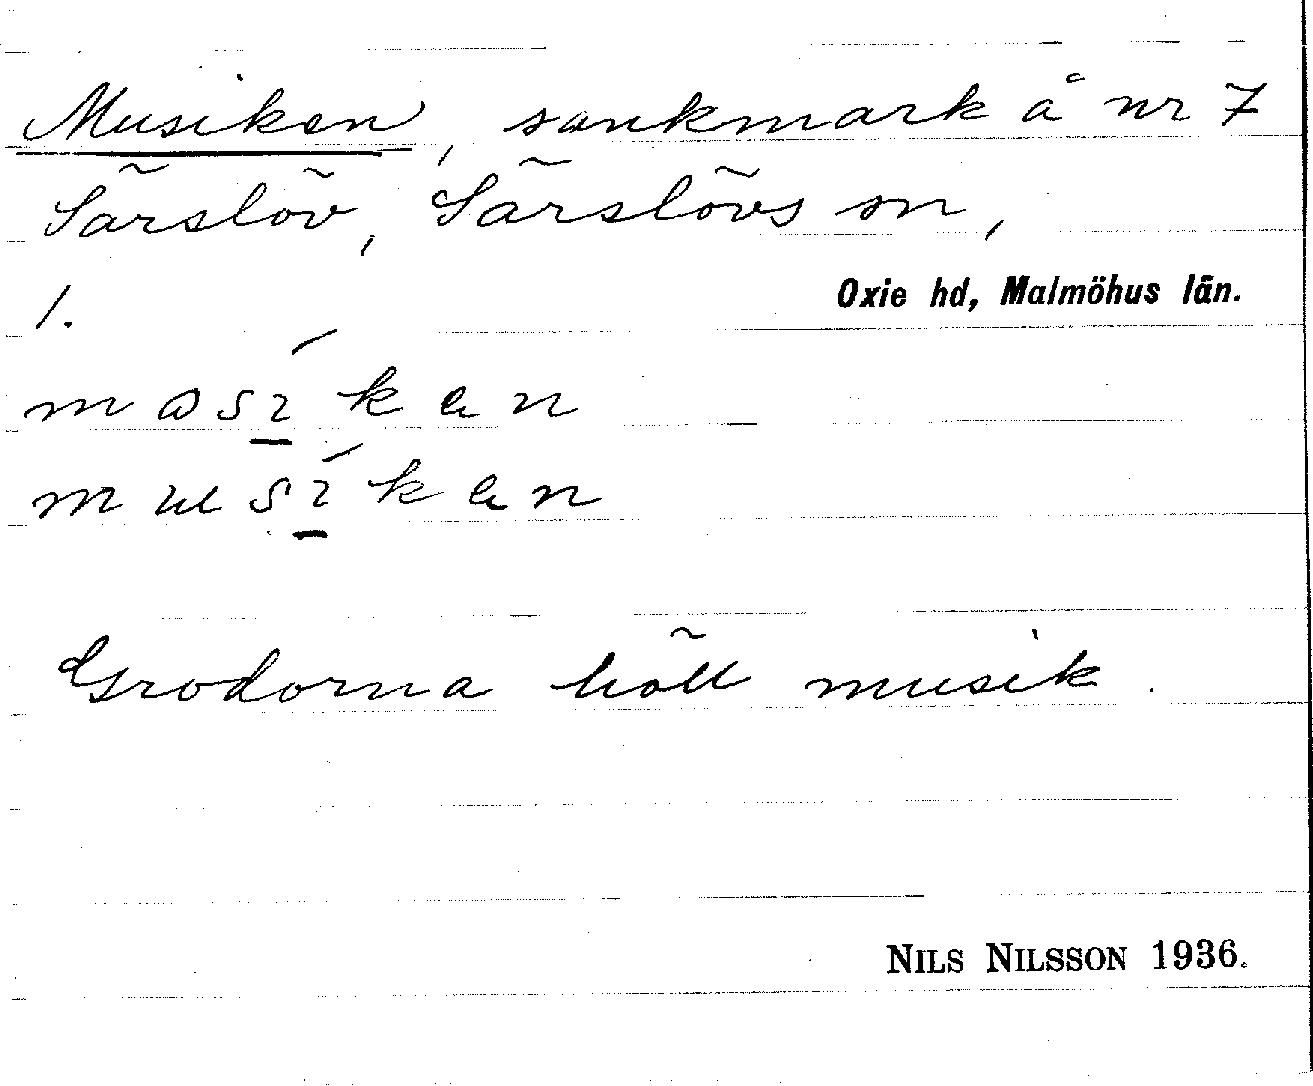 Musiken, sankmark å nr 7
Särslöv, Särslövs sn,
1.
Oxie hd, Malmöhus län.
mɷsíkən
musíkən
Grodorna höll musik.
NILS NILSSON 1936.